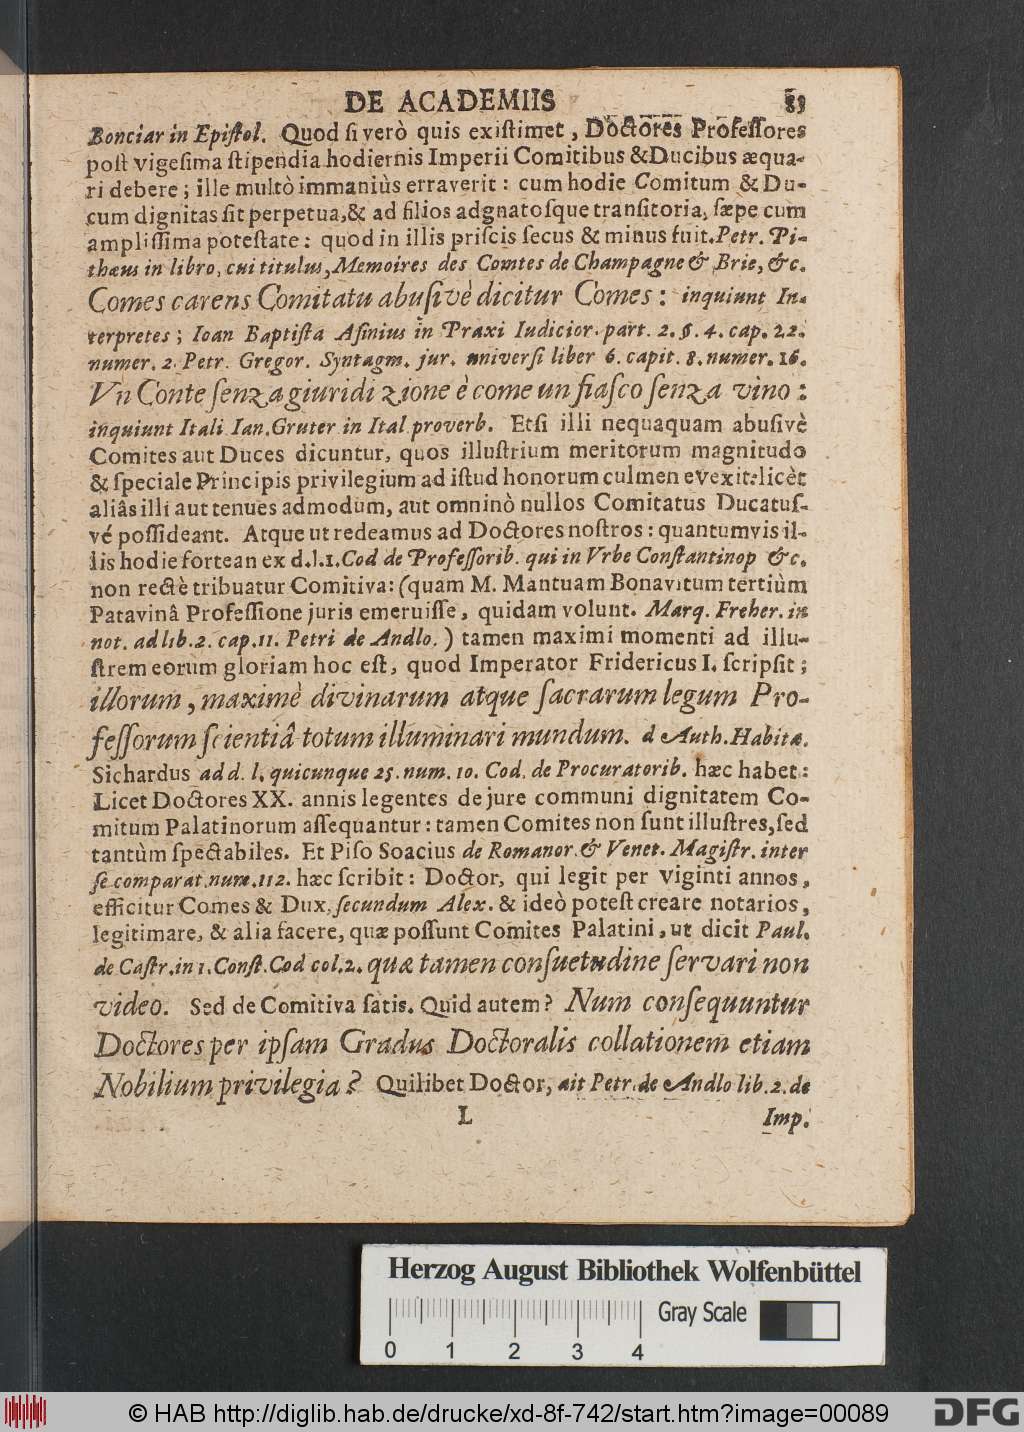 DE ACADEMIIS 89
Bonciar in Epiſtol. Quod ſi verò quis exiſtimet, Doctores Profeſſores
poſt vigeſima ſtipendia hodiernis Imperii Comitibus &Ducibus æqua-
ri debere; ille multò immaniùs erraverit: cum hodie Comitum & Du-
cum dignitas ſit perpetua,& ad filios adgnatoſque tranſitoria, ſæpe cum
ampliſſima poteſtate: quod in illis priſcis ſecus & minus fuit. Petr. Pi-
thæus in libro, cui titulus, Memoires des Comtes de Champagne & Brie, &c.
Comes carens Comitatu abuſivè dicitur Comes: inquiunt In-
terpretes; Ioan Baptiſta Aſinius in Praxi Iudicior. part. 2. §. 4. cap. 22.
numer. 2. Petr. Gregor. Syntagm. jur. univerſi liber 6. capit. 8. numer. 16.
Vn Conte ſenza giuridizione è come un fiaſco ſenza vino:
inquiunt Itali Ian. Gruter in Ital proverb. Etſi illi nequaquam abuſivè
Comites aut Duces dicuntur, quos illuſtrium meritorum magnitudo
& ſpeciale Principis privilegium ad iſtud honorum culmen evexit: licèt
aliâs illi aut tenues admodum, aut omninò nullos Comitatus Ducatuſ-
vé poſſideant. Atque ut redeamus ad Doctores noſtros: quantumvis il-
lis hodie fortean ex d.l.1. Cod de Profeſſorib. qui in Vrbe Conſtantinop &c.
non rectè tribuatur Comitiva: (quam M. Mantuam Bonavitum tertiùm
Patavinâ Profeſſione juris emeruiſſe, quidam volunt. Marq. Freher. in
not. ad lib. 2. cap. 11. Petri de Andlo.) tamen maximi momenti ad illu-
ſtrem eorum gloriam hoc eſt, quod Imperator Fridericus I. ſcripſit;
illorum, maximè divinarum atque ſacrarum legum Pro-
feſſorum ſcientiâ totum illuminari mundum. d Auth. Habita.
Sichardus ad d. l. quicunque 25. num. 10. Cod. de Procuratorib. hæc habet:
Licet Doctores XX. annis legentes de jure communi dignitatem Co-
mitum Palatinorum aſſequantur: tamen Comites non ſunt illuſtres, ſed
tantùm ſpectabiles. Et Piſo Soacius de Romanor. & Venet. Magiſtr. inter
ſe comparat. num. 112. hæc ſcribit: Doctor, qui legit per viginti annos,
efficitur Comes & Dux. ſecundum Alex. & ideò poteſt creare notarios,
legitimare, & alia facere, quæ poſſunt Comites Palatini, ut dicit Paul.
de Caſtr. in 1. Conſt. Cod col. 2. quæ tamen conſuetudine ſervari non
video. Sed de Comitiva ſatis. Quid autem? Num conſequuntur
Doctores per ipſam Gradus Doctoralis collationem etiam
Nobilium privilegia? Quilibet Doctor, ait Petr. de Andlo lib. 2. de
L Imp.
Herzog August Bibliothek Wolfenbüttel
Gray Scale
0 1 2 3 4
© HAB http://diglib.hab.de/drucke/xd-8f-742/start.htm?image=00089
DFG